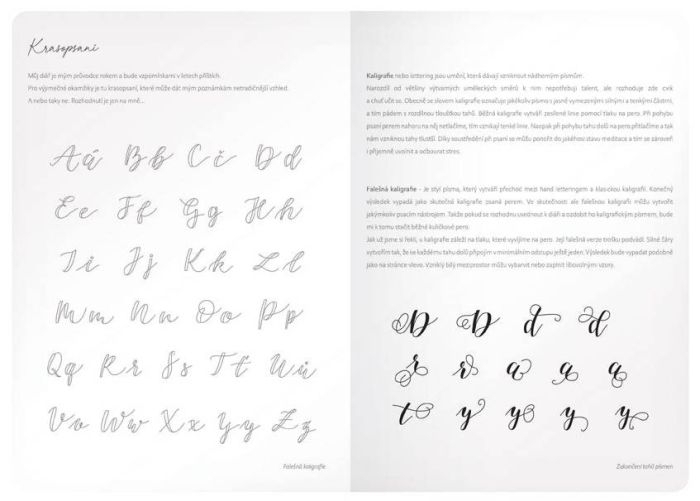 Krasopsaní
Můj diář je mým průvodce rokem a bude vzpomínkami v letech příštích.
Pro výjimečné okamžiky je tu krasopsaní, které může dát mým poznámkám netradičnější vzhled.
A nebo taky ne. Rozhodnutí je jen na mně...
Aá Bb Cč Dd
Ee Ff Gg Hh
Ii Jj Kk Ll
Mm Nn Oo Pp
Qq Rr Ss Tť Uů
Vv Ww Xx Yy Zz
Falešná kaligrafie
Kaligrafie nebo lettering jsou umění, která dávají vzniknout nádherným písmům.
Narozdíl od většiny výtvarných uměleckých směrů k nim nepotřebuji talent, ale rozhoduje zde cvik
a chuť učit se. Obecně se slovem kaligrafie označuje jakékoliv písmo s jasně vymezenými silnými a tenkými částmi,
a tím pádem s rozdílnou tloušťkou tahů. Běžná kaligrafie vytváří zesílené linie pomocí tlaku na pero. Při pohybu
psaní perem nahoru na něj netlačíme, tím vznikají tenké linie. Naopak při pohybu tahu dolů na pero přitlačíme a tak
nám vzniknou tahy tlustší. Díky soustředění při psaní se můžu ponořit do jakéhosi stavu meditace a tím se zároveň
i příjemně uvolnit a odbourat stres.
Falešná kaligrafie - Je styl písma, který vytváří přechod mezi hand letteringem a klasickou kaligrafií. Konečný
výsledek vypadá jako skutečná kaligrafie psaná perem. Ve skutečnosti ale falešnou kaligrafii můžu vytvořit
jakýmkoliv psacím nástrojem. Takže pokud se rozhodnu uvelebnit v diáři a ozdobit ho kaligrafickým písmem, bude
mi k tomu stačit běžné kuličkové pero.
Jak už jsme si řekli, u kaligrafie záleží na tlaku, který vyvíjíme na pero. Její falešná verze trošku podvádí. Silné čáry
vytvořím tak, že ke každému tahu dolů připojím v minimálním odstupu ještě jeden. Výsledek bude vypadat podobně
jako na stránce vlevo. Vzniklý bílý meziprostor můžu vybarvit nebo zaplnit libovolnými vzory.
D D d d
r r a a a
t y y y y
Zakončení tahů písmen